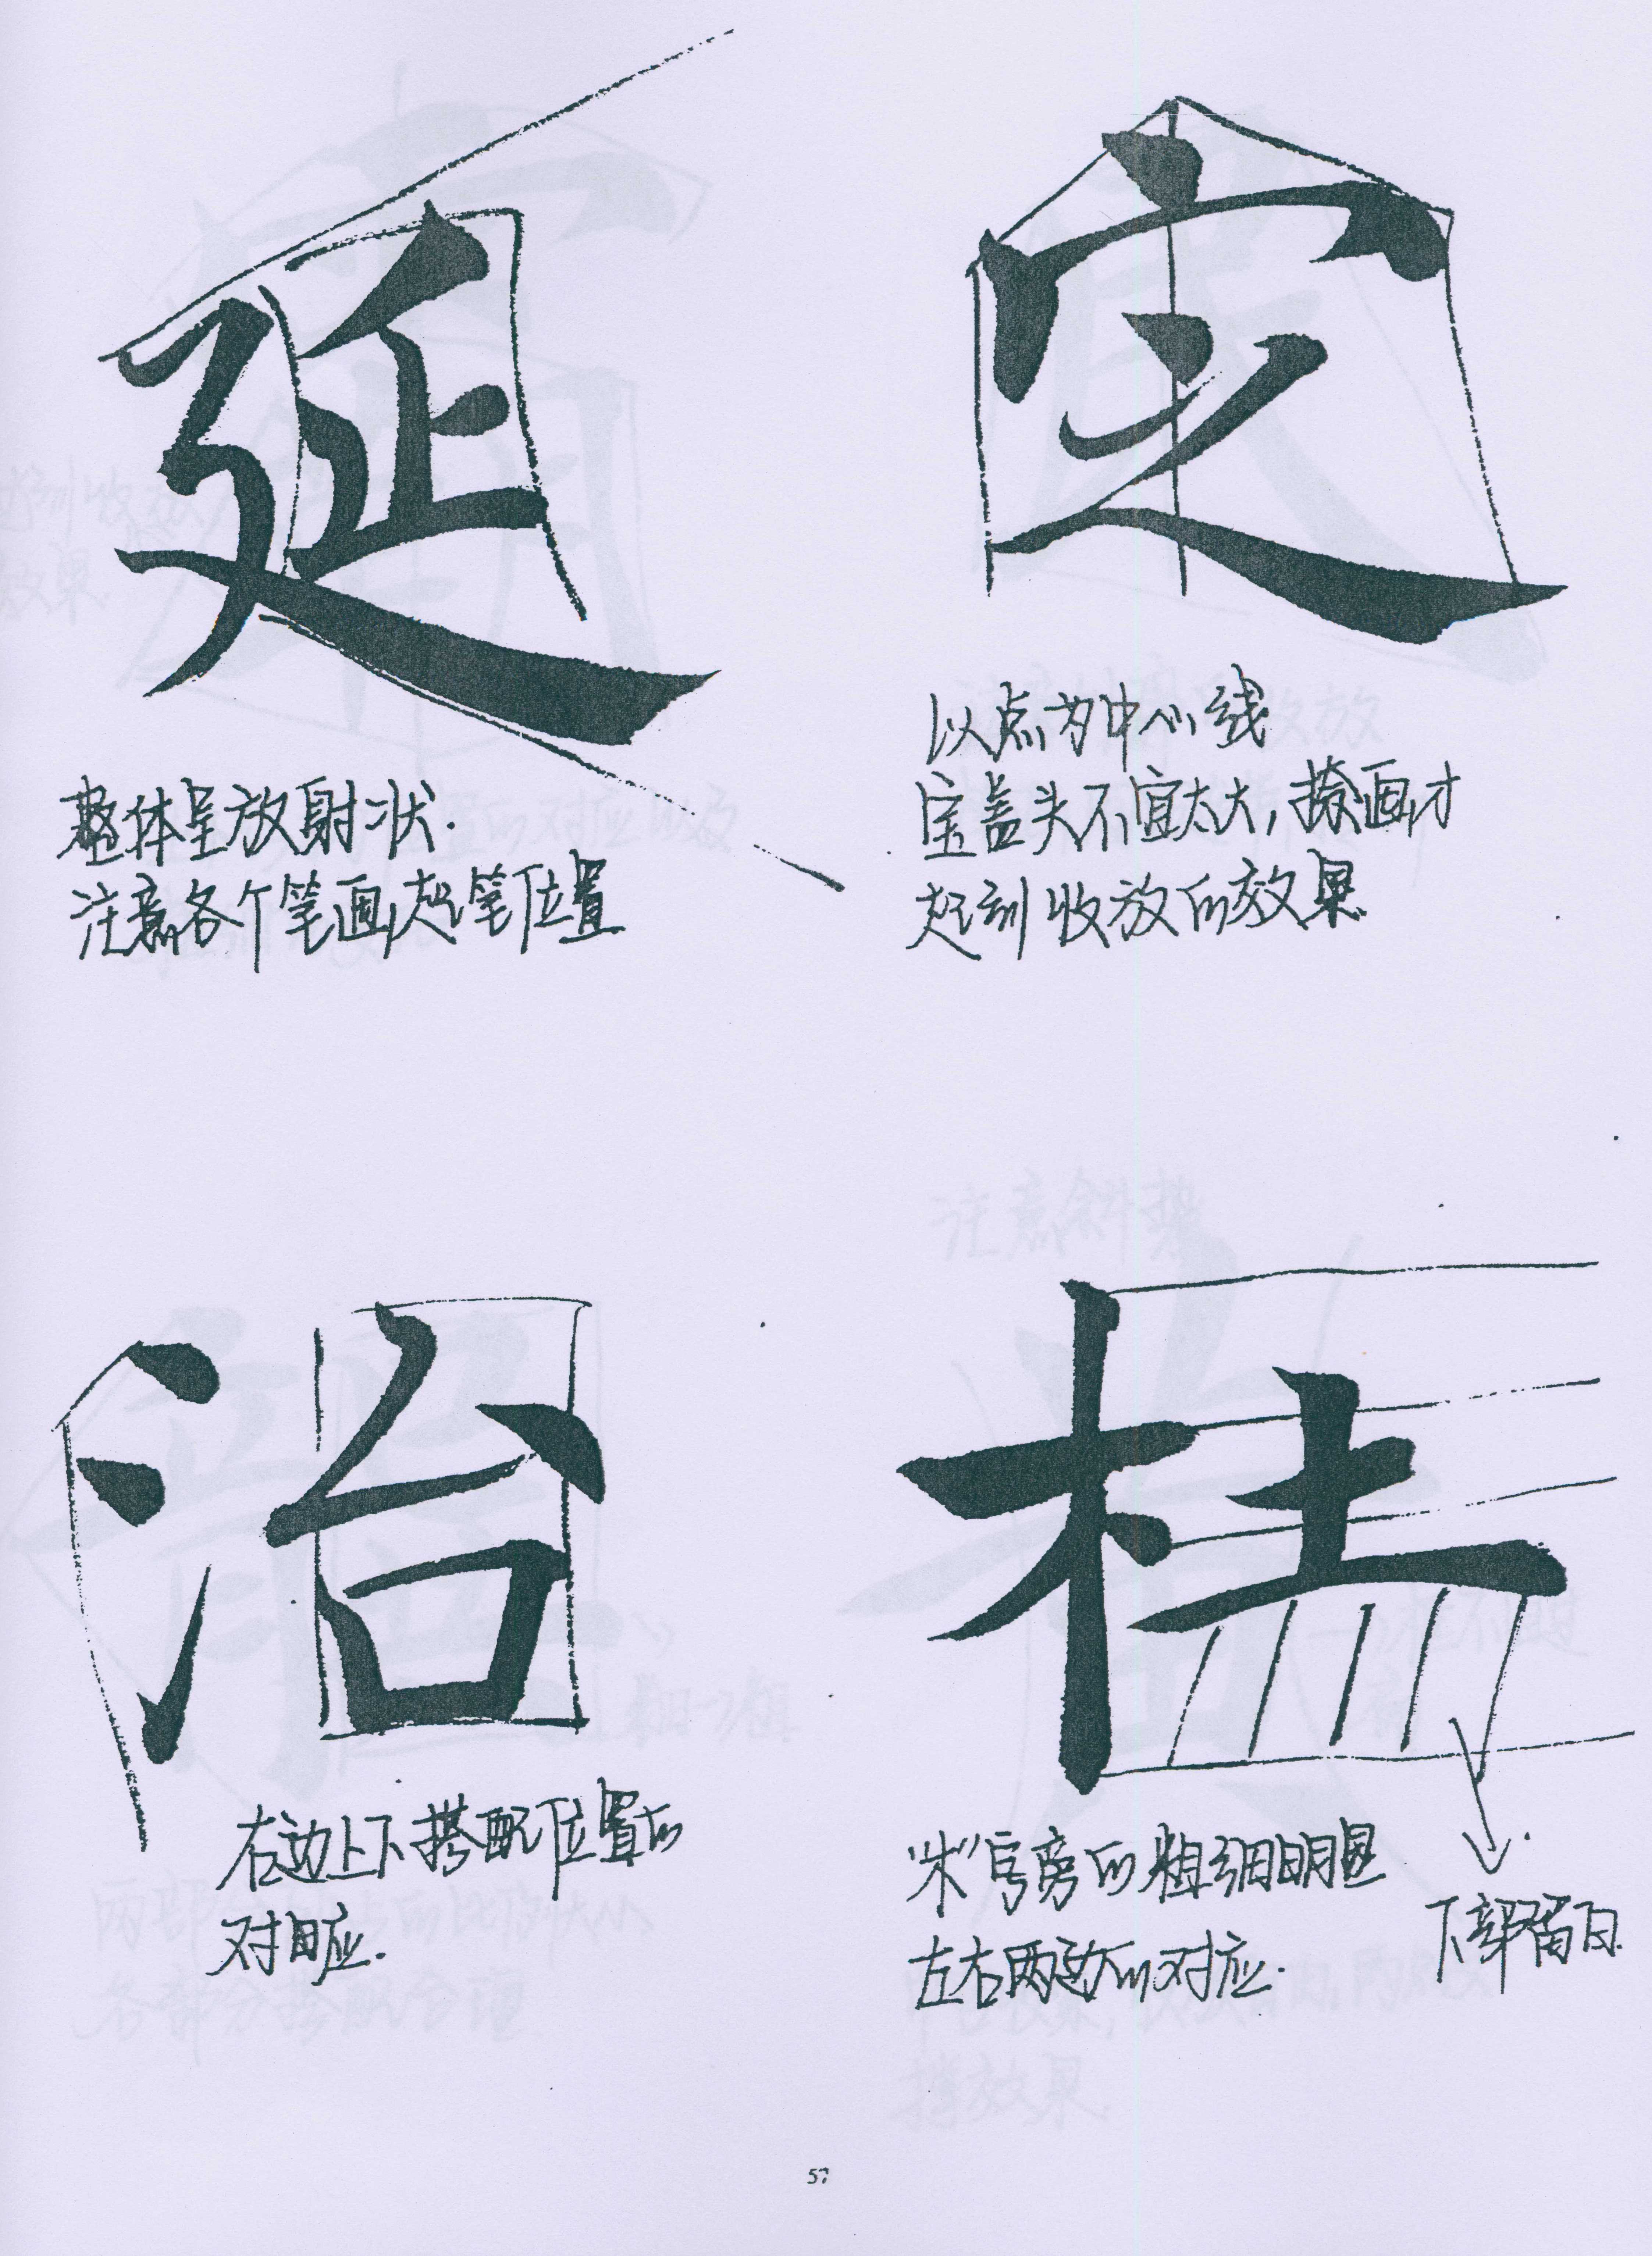 延
整体呈放射状.
注意各个笔画起笔位置
定
以点为中心线
宝盖头不宜太大,捺画才
起到收放的效果.
治
右边上下搭配位置的
对应.
杜
“木”字旁的粗细明显
左右两边的对应.
下部留白.
57